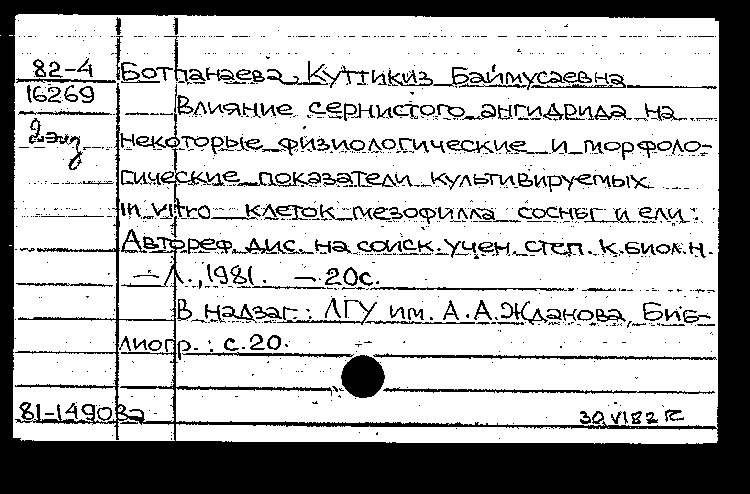 82-4 Ботпанаева, Куттикиз Баймусаевна
16269 Влияние сернистого ангидрида на
2 экз некоторые физиологические и морфоло-
гические показатели культивируемых
in vitro клеток мезофилла сосны и ели:
Автореф. дис. на соиск. учен. степ. к.биол.н.
– Л., 1981. – 20с.
В надзаг.: ЛГУ им. А.А.Жданова. Биб-
лиогр.: с.20.
81-14903а